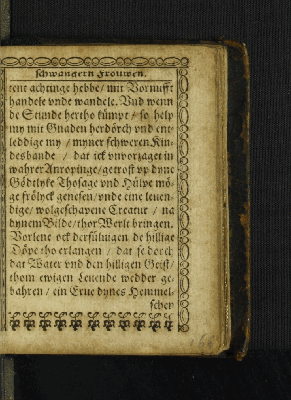 schwangern Frouwen.
tent achtinge hebbe / mit Vornufft
handele vnde wandele. Vnd wenn
de Stunde hertho kümpt / so help
my mit Gnaden herdörch vnd ent-
leddige my / myner schweren Kin-
desbande / dat ick vnvorzaget in
wahrer Anropinge / getrost vp dyne
Gödtlyke Thosage vnd Hülpe mö-
ge frölyck genesen / vnde eine leuen-
dige / wolgeschapene Creatur / na
dynem Bilde / thor Werlt bringen.
Vorlene ock dersüluigen de hillige
Döpe tho erlangen / dat se dorch
dat Water vnd den hilligen Geist /
thom ewigen Leuende wedder ge-
bahren / ein Erue dynes Hemmel-
schen